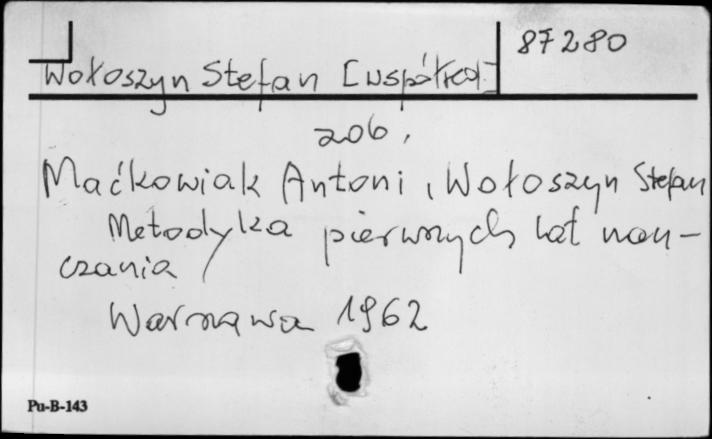 87280
Wołoszyn Stefan [współred.]
zob.
Maćkowiak Antoni, Wołoszyn Stefan
Metodyka pierwszych lat nau-
czania
Warszawa 1962
Pu-B-143